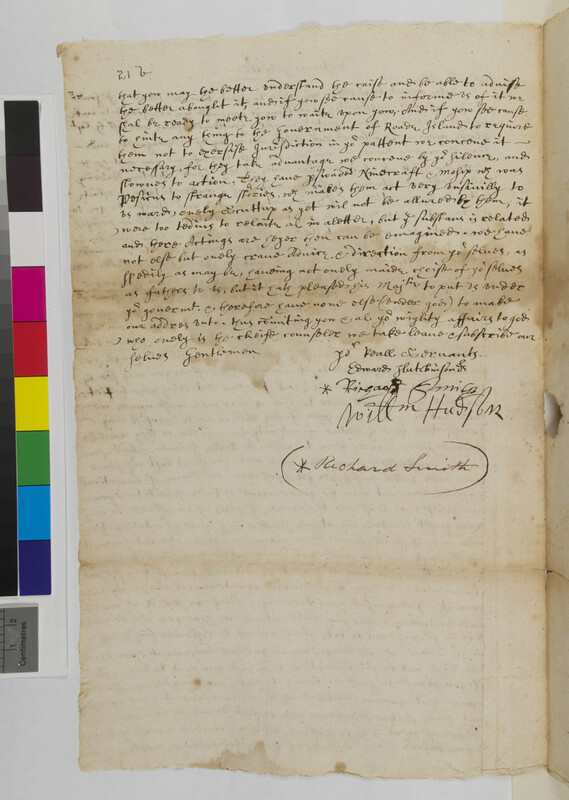 21 b
that you may be better understand the caise and be able to advise
the better about it, and if you see cause to informe us of it we
shal be ready to meet you to waite upon you, And if you see cause
to write any thing to the Government of Roade Island to require
them not to exersise Jurisdition in yr pattent we conceve it
necesary for they take advantage we conceve by yr silence, and
slownes to action, they have pswaded & wch was
to strange stories, wch makes them act very unsivilly to
us wards, onely as yet wil not be allured by them, it
were too tedius to relaite al in a letter, but ye substans is related
and there Actings are heyer then can be emagined: we have
not else but onely crave Advice & direction from yr selves, as
spedily as may be, haveing not onely maide choise of yr selves
as fathers to us, but it hath pleased his Majtie to put us under
yr govermt. & therefore have none else (under god) to make
our address unto: thus comiting you & al yr wighty affairs to god
who onely is the choise counseler we take leave & subscribe our
selves Gentlemen
yr Reall Servants.
Edward Hutchinson
* Richard Smith
Willm Hudson
(* Richard Smith)
Centimetres